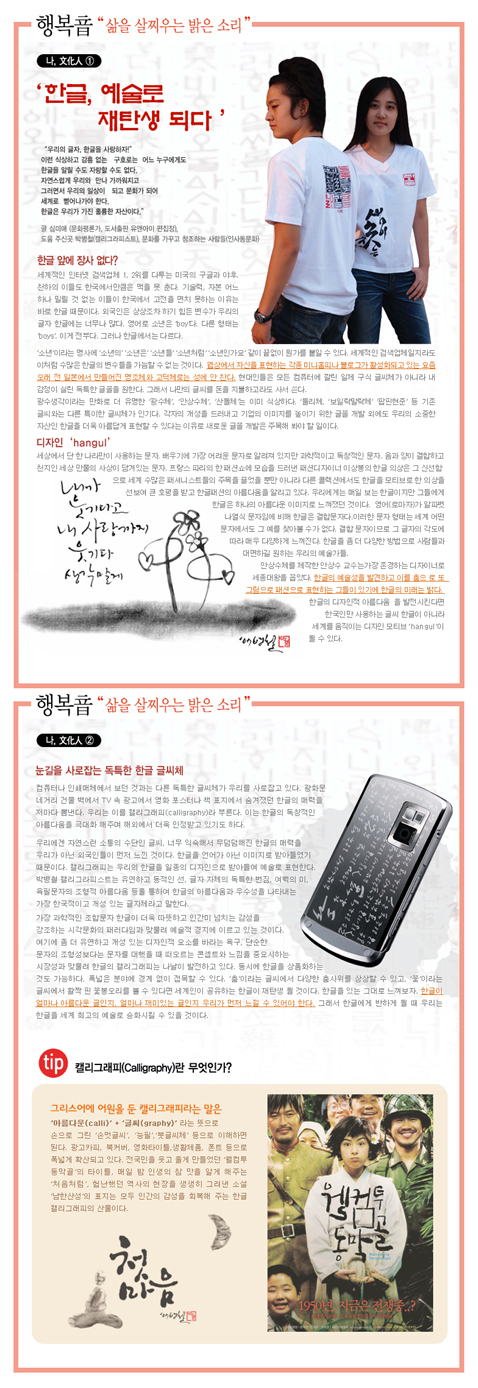 행복音 “삶을 살찌우는 밝은 소리”
나, 文化人 ①
‘한글, 예술로
재탄생 되다’
“우리의 글자, 한글을 사랑하자!”
이런 식상하고 감흥 없는 구호로는 어느 누구에게도
한글을 알릴 수도 자랑할 수도 없다.
자연스럽게 우리와 만나 가까워지고
그러면서 우리의 일상이 되고 문화가 되어
세계로 뻗어나가야 한다.
한글은 우리가 가진 훌륭한 자산이다.”
글 심미애 (문화평론가, 도서출판 유앤아이 편집장),
도움 주신곳 박병철(캘리그라피스트), 문화를 가꾸고 창조하는 사람들(인사동문화)
한글 앞에 장사 없다?
세계적인 인터넷 검색업체 1, 2위를 다투는 미국의 구글과 야후.
천하의 이들도 한국에서만큼은 맥을 못 춘다. 기술력, 자본 어느
하나 밀릴 것 없는 이들이 한국에서 고전을 면치 못하는 이유는
바로 한글 때문이다. 외국인은 상상조차 하기 힘든 변수가 우리의
글자 한글에는 너무나 많다. 영어로 소년은 ‘boy’다. 다른 형태는
‘boys’. 이게 전부다. 그러나 한글에서는 다르다.
‘소년’이라는 명사에 ‘소년의’ ‘소년은’ ‘소년들’ ‘소년처럼’ ‘소년인가요’ 같이 끝없이 뭔가를 붙일 수 있다. 세계적인 검색업체일지라도
이처럼 수많은 한글의 변수들을 가늠할 수 없는 것이다. 웹상에서 자신을 표현하는 각종 미니홈피나 블로그가 활성화되고 있는 요즘
오래 전 일본에서 만들어진 명조체와 고딕체로는 성에 안 찬다. 현대인들은 모든 컴퓨터에 깔린 일제 구식 글씨체가 아니라 내
감정이 실린 독특한 글꼴을 원한다. 그래서 나만의 글씨를 돈을 지불하고라도 사서 쓴다.
광수생각이라는 만화로 더 유명한 ‘광수체’, ‘안상수체’, ‘산돌체’는 이미 식상하다. ‘둘리체, ‘보일락말락체’ ‘팝핀현준’ 등 기존
글씨와는 다른 특이한 글씨체가 인기다. 각자의 개성을 드러내고 기업의 이미지를 높이기 위한 글꼴 개발 외에도 우리의 소중한
자산인 한글을 더욱 아름답게 표현할 수 있다는 이유로 새로운 글꼴 개발은 주목해 봐야 할 일이다.
디자인 ‘hangul’
세상에서 단 한 나라만이 사용하는 문자. 배우기에 가장 어려운 문자로 알려져 있지만 과학적이고 독창적인 문자. 음과 양이 결합하고
천지인 세상 만물의 사상이 담겨있는 문자. 프랑스 파리의 한 패션쇼에 모습을 드러낸 패션디자이너 이상봉의 한글 의상은 그 신선함
으로 세계 수많은 패셔니스트들의 주목을 끌었을 뿐만 아니라 다른 콜렉션에서도 한글을 모티브로 한 의상을
선보여 큰 호평을 받고 한글패션의 아름다움을 알리고 있다. 우리에게는 매일 보는 한글이지만 그들에게
한글은 하나의 아름다운 이미지로 느껴졌던 것이다. 영어(로마자)가 알파벳
나열식 문자임에 비해 한글은 결합문자다.이러한 문자 형태는 세계 어떤
문자에서도 그 예를 찾아볼 수가 없다. 결합 문자이므로 그 글자의 각도에
따라 매우 다양하게 느껴진다. 한글을 좀 더 다양한 방법으로 사람들과
대면하길 원하는 우리의 예술가들.
안상수체를 제작한 안상수 교수는가장 존경하는 디자이너로
세종대왕을 꼽았다. 한글의 예술성을 발견하고 이를 춤으로 또
그림으로 패션으로 표현하는 그들이 있기에 한글의 미래는 밝다.
한글의 디자인적 아름다움 을 발전시킨다면
한국인만 사용하는 글씨 한글이 아니라
세계를 움직이는 디자인 모티브 ‘hangul’이
될 수 있다.
내가
웃기다고
내 사랑까지
웃기다
생각말게
행복音 “삶을 살찌우는 밝은 소리”
나, 文化人 ②
눈길을 사로잡는 독특한 한글 글씨체
컴퓨터나 인쇄매체에서 보던 것과는 다른 독특한 글씨체가 우리를 사로잡고 있다. 광화문
네거리 건물 벽에서 TV 속 광고에서 영화 포스터나 책 표지에서 숨겨졌던 한글의 매력을
저마다 뽐낸다. 우리는 이를 캘리그라피(calligraphy)라 부른다. 이는 한글의 독창적인
아름다움을 극대화 해주며 해외에서 더욱 인정받고 있기도 하다.
우리에겐 자연스런 소통의 수단인 글씨. 너무 익숙해서 무덤덤해진 한글의 매력을
우리가 아닌 외국인들이 먼저 느낀 것이다. 한글을 언어가 아닌 이미지로 받아들였기
때문이다. 캘리그라피는 우리의 한글을 일종의 디자인으로 받아들여 예술로 표현한다.
박병철 캘리그라피스트는 유연하고 동적인 선, 글자 자체의 독특한 번짐, 여백의 미,
육필문자의 조형적 아름다움 등을 통하여 한글의 아름다움과 우수성을 나타내는
가장 한국적이고 개성 있는 글자체라고 말한다.
가장 과학적인 조합문자 한글이 더욱 따뜻하고 인간미 넘치는 감성을
강조하는 시각문화의 패러다임과 맞물려 예술적 경지에 이르고 있는 것이다.
여기에 좀 더 유연하고 개성 있는 디자인적 요소를 바라는 욕구, 단순한
문자의 조형성보다는 문자를 대했을 때 떠오르는 콘셉트와 느낌을 중요시하는
시장성과 맞물려 한글의 캘리그라피는 나날이 발전하고 있다. 동서에 한글을 상품화하는
것도 가능하다. 폭넓은 분야에 경계 없이 접목할 수 있다. ‘춤’이라는 글씨에서 다양한 춤사위를 상상할 수 있고, ‘꽃’이라는
글씨에서 활짝 핀 꽃봉오리를 볼 수 있다면 세계인이 공유하는 한글이 재탄생 될 것이다. 한글을 있는 그대로 느껴보자. 한글이
얼마나 아름다운 글인지, 얼마나 재미있는 글인지 우리가 먼저 느낄 수 있어야 한다. 그래서 한글에게 반하게 될 때 우리는
한글을 세계 최고의 예술로 승화시킬 수 있을 것이다.
tip 캘리그래피(Calligraphy)란 무엇인가?
그리스어에 어원을 둔 캘리그래피라는 말은
‘아름다운(calli)’ + ‘글씨(graphy)’ 라는 뜻으로
손으로 그린 ‘손멋글씨’, ‘능필’,‘붓글씨체’ 등으로 이해하면
된다. 광고카피, 북커버, 영화타이틀,생활제품, 폰트 등으로
폭넓게 확산되고 있다. 전국민을 웃고 울게 만들었던 ‘웰컴투
동막골’의 타이틀, 매일 밤 인생의 참 맛을 알게 해주는
‘처음처럼’, 험난했던 역사의 현장을 생생히 그려낸 소설
‘남한산성’의 표지는 모두 인간의 감성을 회복해 주는 한글
캘리그라피의 산물이다.
첫
마음
웰컴투
동막골
1950년, 지금은 전쟁중..?